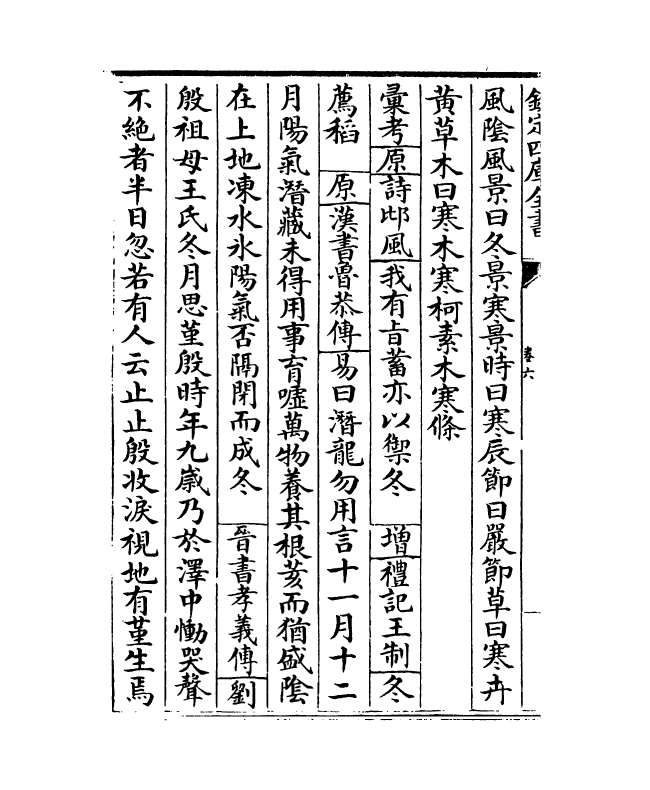 欽定四庫全書
卷六
風陰風景曰冬景寒景時曰寒辰節曰嚴節草曰寒卉
黄草木曰寒木寒柯素木寒條
彙考原詩邶風我有㫖蓄亦以禦冬 増禮記王制冬
薦稻 原漢書魯恭傳易曰潛龍勿用言十一月十二
月陽氣潛藏未得用事育噓萬物養其根荄而猶盛陰
在上地凍水氷陽氣否隔閉而成冬 晉書孝義傳劉
殷祖母王氏冬月思堇殷時年九歲乃於澤中慟哭聲
不絶者半日忽若有人云止止殷收淚視地有堇生焉